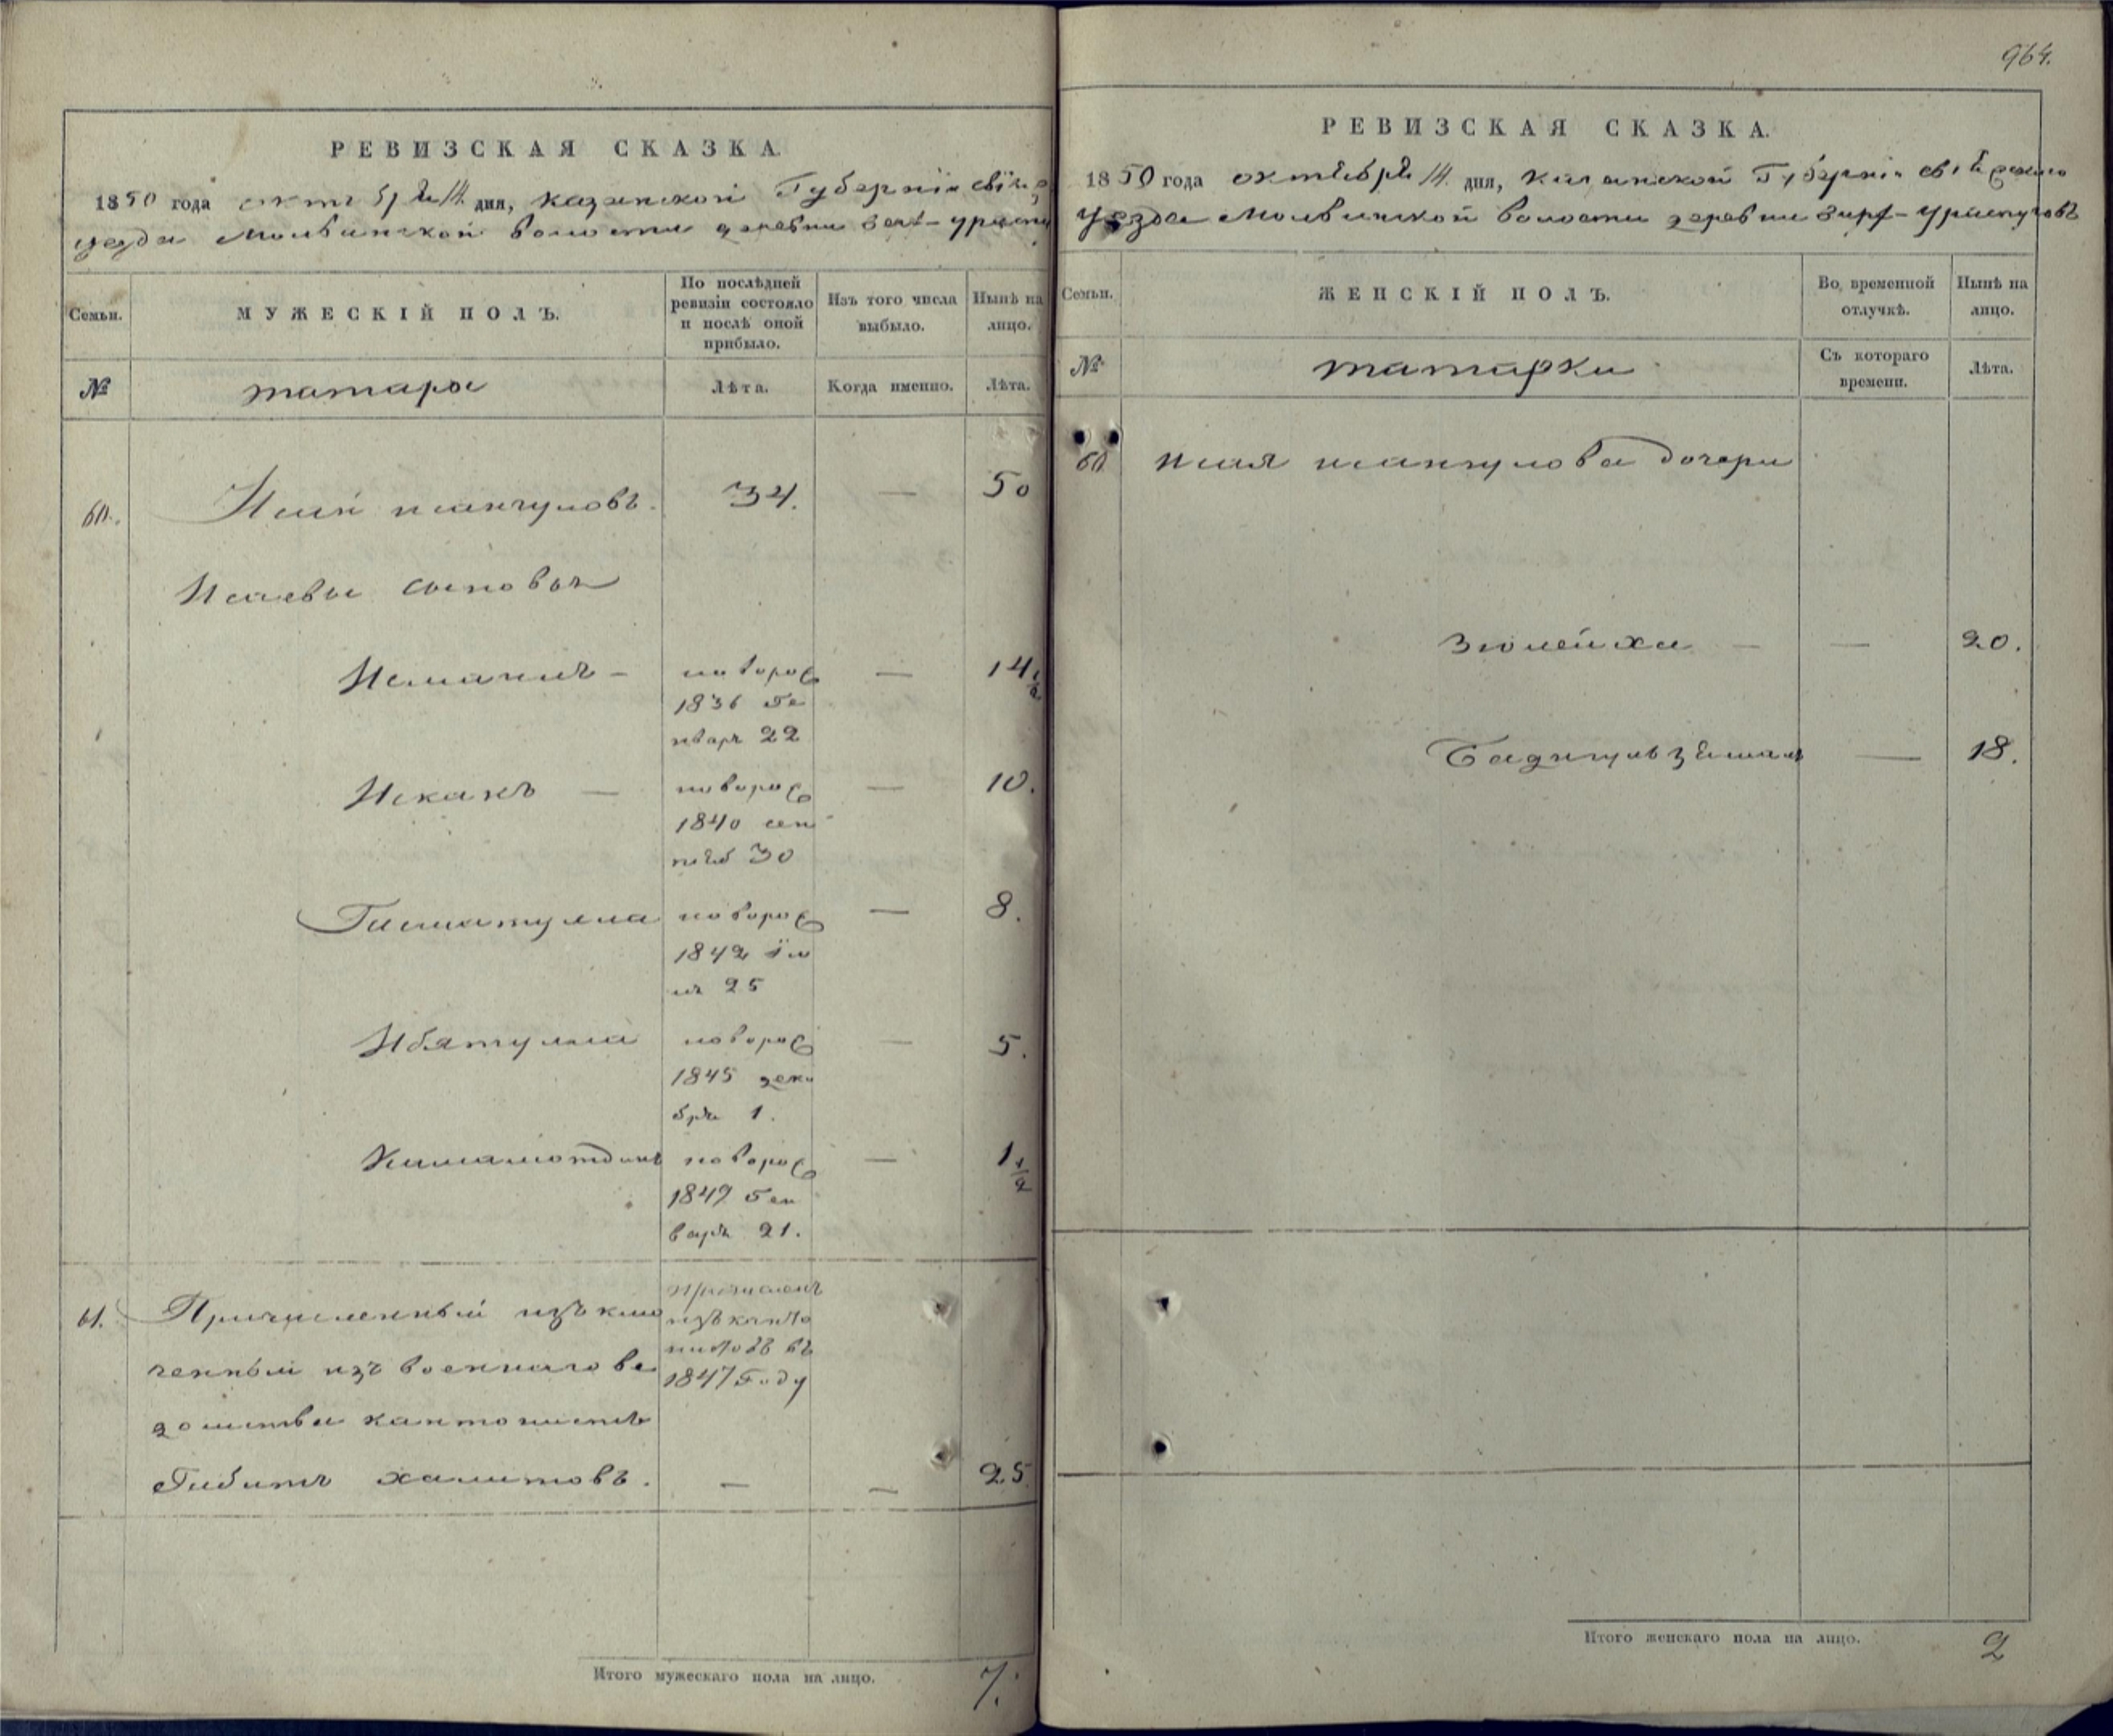 964.
РЕВИЗСКАЯ СКАЗКА.
1850 года октября 14 дня, Казанской Губерніи Свіяж
уезда Молвинской волости деревни
Семьи.
МУЖЕСКІЙ ПОЛЪ.
По послѣдней ревизіи состояло и послѣ оной прибыло.
Изъ того числа выбыло.
Нынѣ на лицо.
№
татары
Лѣта.
Когда именно.
Лѣта.
60. Исай 34. — 50
Исаевы сыновья
новорож — 14 1/2
1836 Ге
нваря 22
новорож — 10.
1840 сен
30
новорож — 8.
1842 Ію
ля 25
Ибятулла новорож — 5.
1845 дека
бря 1.
новорож — 1 1/2
1849 Ген
варя 21.
61. Причисленный изъ клю
ченный изъ военнаго ве
домства кантонистъ
Гибитъ Халитовъ. — — 25
причисленъ
изъ канто
нистовъ въ
1847 Году
Итого мужескаго пола на лицо. 7.
РЕВИЗСКАЯ СКАЗКА.
1850 года октября 14 дня, Казанской Губерніи Свіяжскаго
Уезда Молвинской волости деревни
Семьи.
ЖЕНСКІЙ ПОЛЪ.
Во временной отлучкѣ.
Нынѣ на лицо.
№
татарки
Съ котораго времени.
Лѣта.
60 дочери
Зюлейха — — 20.
— 18.
Итого женскаго пола на лицо. 2